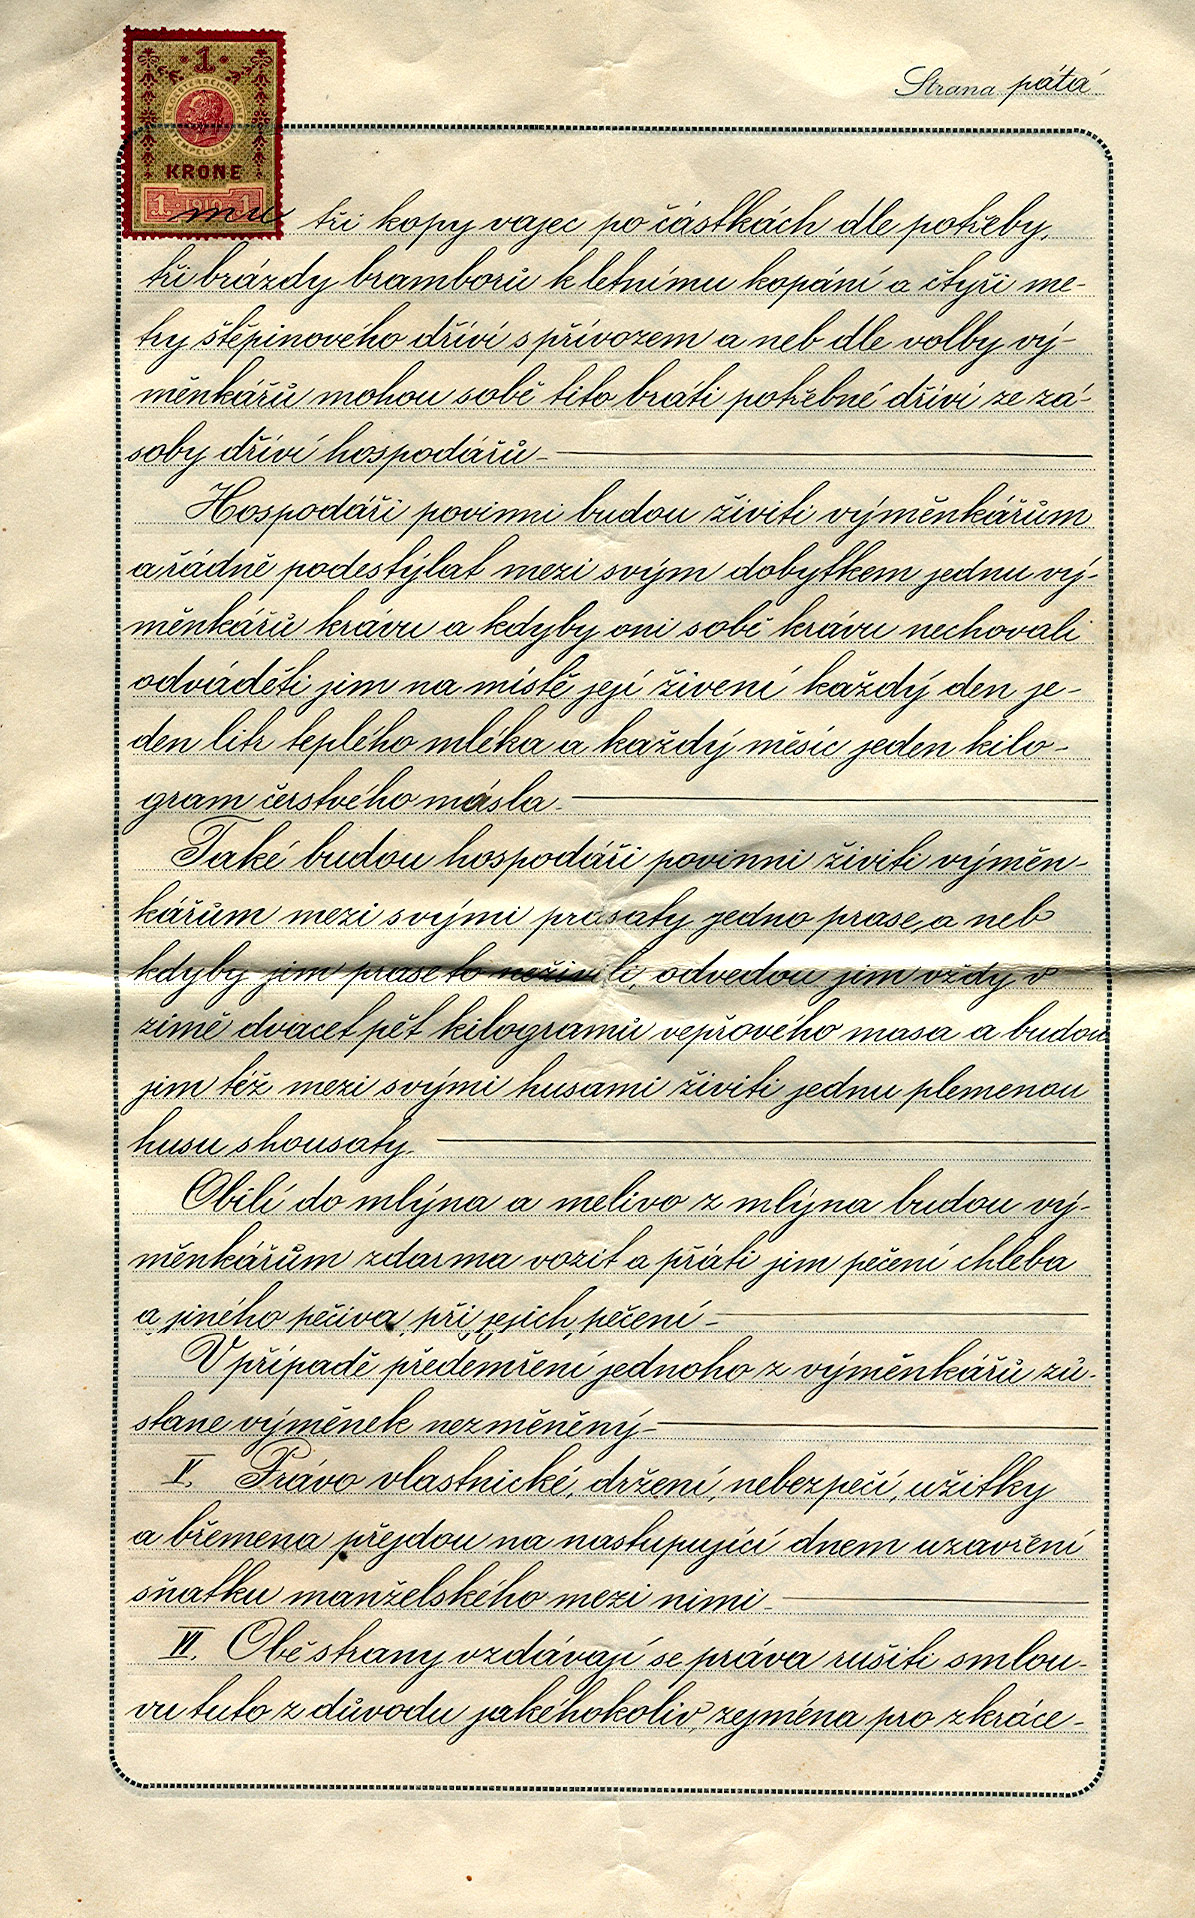 Strana pátá
1
K.K. OESTERREICHISCHE STEMPEL-MARKE
KRONE
1 1910 1
mu tři kopy vajec po částkách dle potřeby,
tři brázdy bramborů k letnímu kopání a čtyři me-
try štěpinového dříví s přívozem a neb dle volby vý-
měnkářů mohou sobě tito bráti potřebné dříví ze zá-
soby dříví hospodářů -
Hospodáři povinni budou živiti výměnkářům
a řádně podestýlat mezi svým dobytkem jednu vý-
měnkářů krávu a kdyby oni sobě krávu nechovali
odváděti jim na místě její živení každý den je-
den litr teplého mléka a každý měsíc jeden kilo-
gram čerstvého másla -
Také budou hospodáři povinni živiti výměn-
kářům mezi svými prasaty jedno prase, a neb
kdyby jim prase to neživili, odvedou jim vždy v
zimě dvacet pět kilogramů vepřového masa a budou
jim též mezi svými husami živiti jednu plemenou
husu s housaty. -
Obilí do mlýna a melivo z mlýna budou vý-
měnkářům zdarma vozit a přáti jim pečení chleba
a jiného pečiva, při jejich pečení -
V případě předemření jednoho z výměnkářů zů-
stane výměnek nezměněný -
V. Právo vlastnické, držení, nebezpečí, užitky
a břemena přejdou na nastupující dnem uzavření
sňatku manželského mezi nimi -
VI. Obě strany vzdávají se práva rušiti smlou-
vu tuto z důvodu jakéhokoliv, zejména pro zkráce-